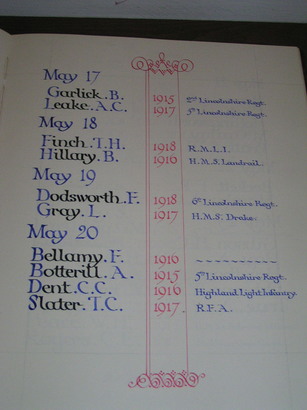 May 17
Garlick. B. 1915 2nd Lincolnshire Regt.
Leake. A.C. 1917 5th Lincolnshire Regt.
May 18
Finch. T.H. 1918 R.M.L.I.
Hillary. B. 1916 H.M.S. Landrail.
May 19
Dodsworth. F. 1918 6th Lincolnshire Regt.
Gray. L. 1917 H.M.S. Drake.
May 20
Bellamy. F. 1916 ~~~~~~~~~~
Botterill. A. 1915 5th Lincolnshire Regt.
Dent. C.C. 1916 Highland Light Infantry.
Slater. T.C. 1917. R.F.A.